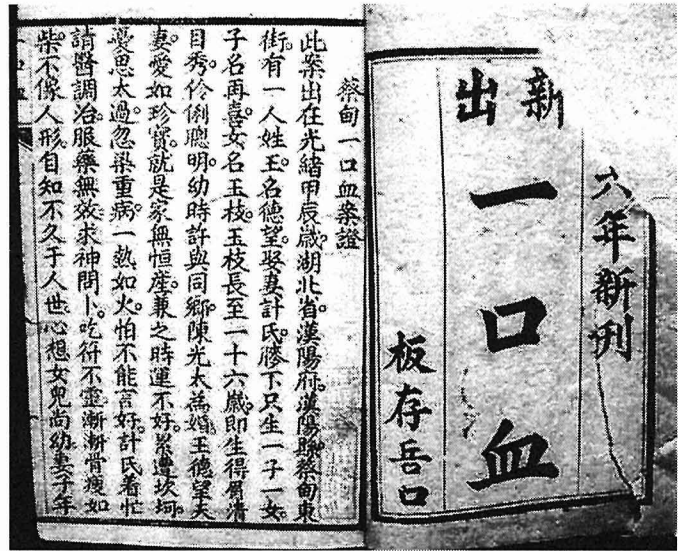 六年新刊
新出
一口血
板存岳口
蔡甸一口血案證
此案出在光緒甲辰歲湖北省漢陽府。漢陽縣蔡甸東
街。有一人姓王。名德望。娶妻計氏。膝下只生一子一女。
子名再喜。女名玉枝。玉枝長至一十六歲。即生得眉清
目秀。伶俐聰明。幼時許與同鄉陳光太為婚。王德望夫
妻。愛如珍寶。就是家無恒產。兼之時運不好。累遭坎坷。
憂思太過。忽染重病。一熱如火。怕不能言好。計氏着忙
請醫調治。服藥無效。求神問卜。吃符不靈。漸漸骨瘦如
柴。不像人形。自知不久于人世。心想女兒尚幼。妻子年